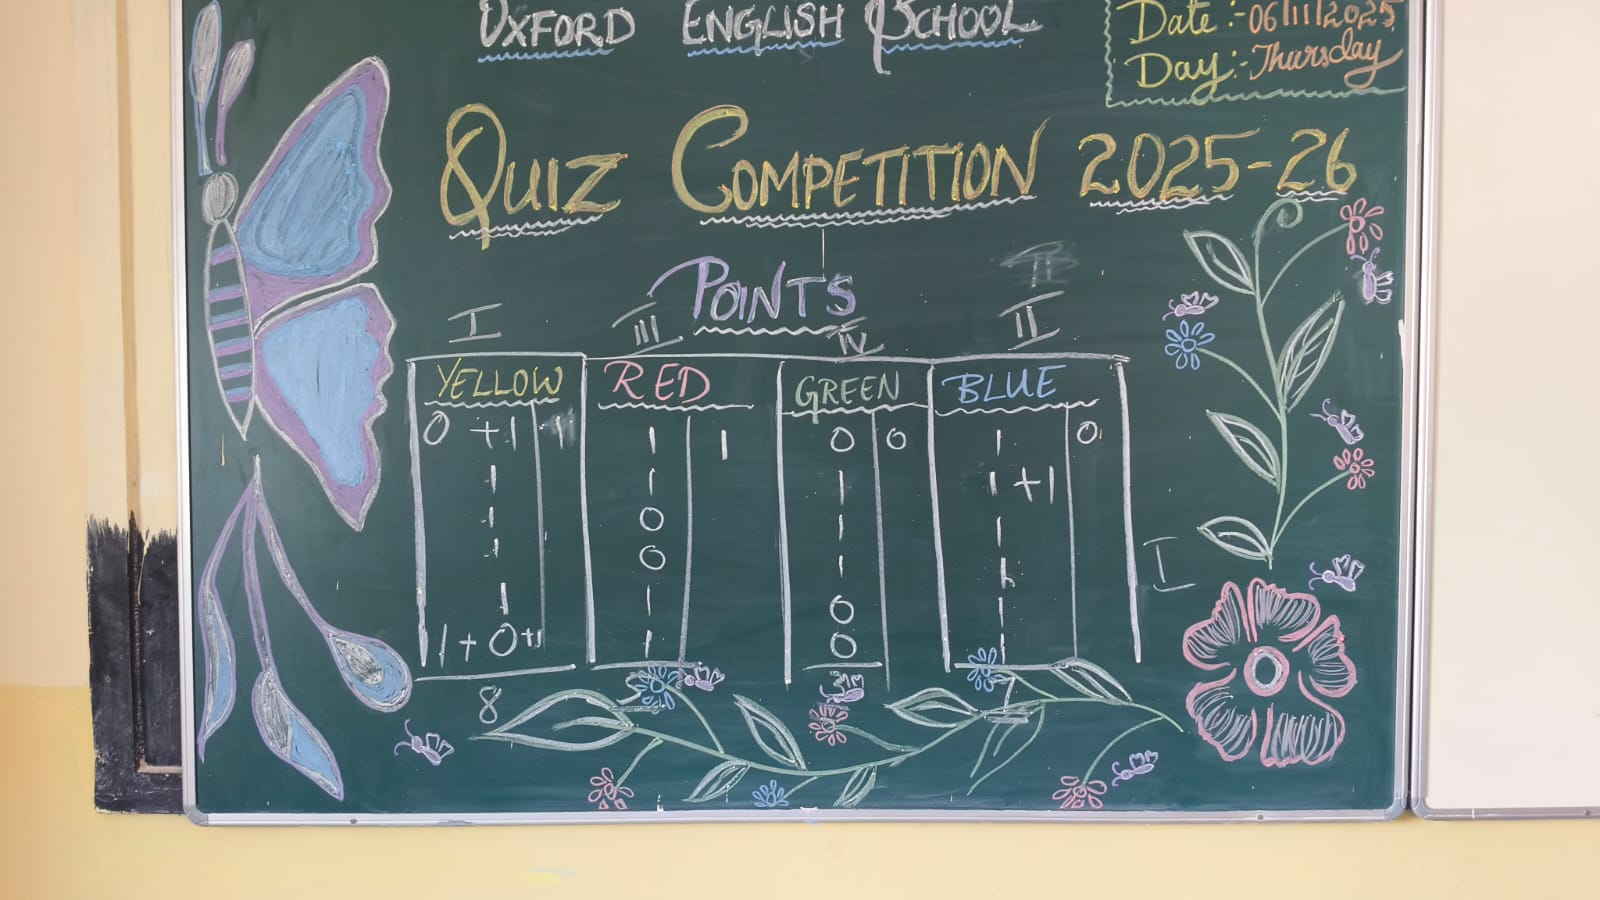 OXFORD ENGLISH SCHOOL
Date :- 06/11/2025
Day :- Thursday
QUIZ COMPETITION 2025-26
POINTS
I III IV II
YELLOW RED GREEN BLUE
0 +1 1 1 1 0 0 1 0
1 1 1 1 +1
1 0 1 1
1 0 1 1
1 1 0 1
1+0+1 1 0 1
I
8